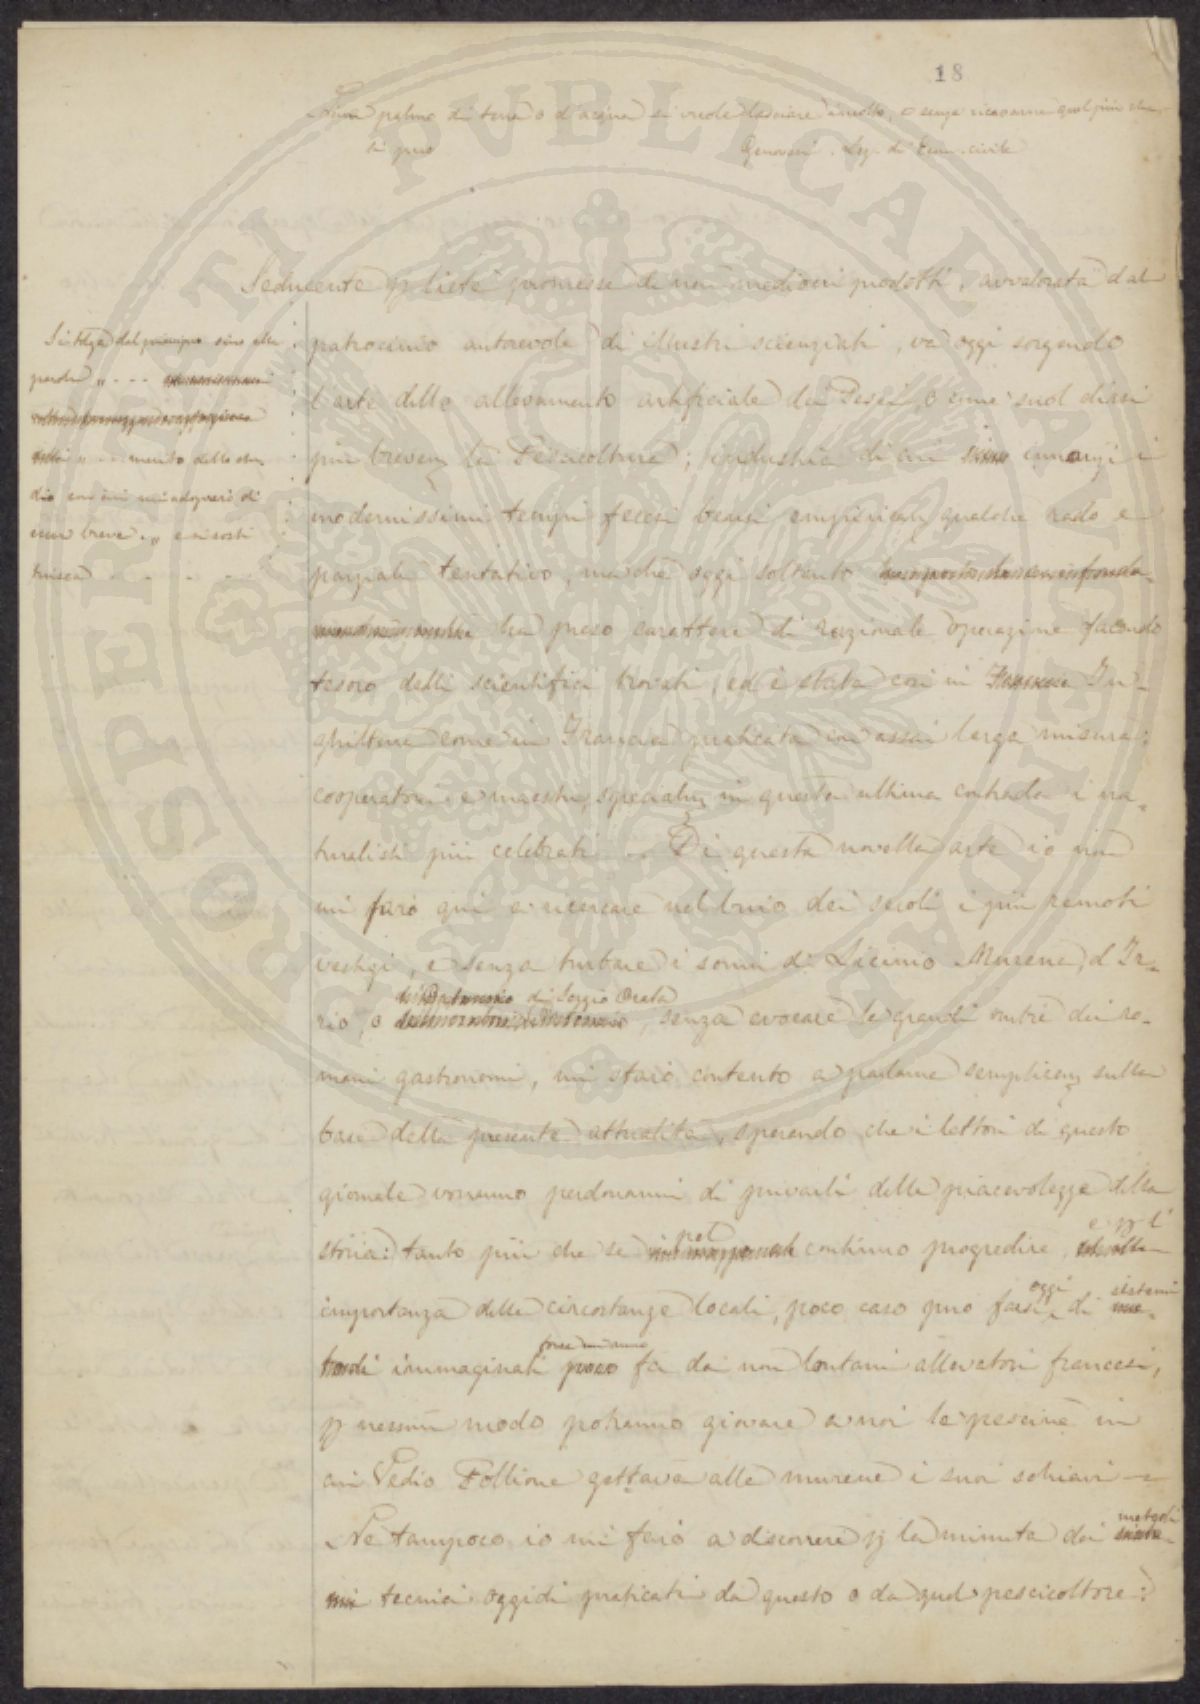 18
palmo di terra o d'acqua si vuole lasciare incolto, o senza ricavarne quel più che
si può
Genovesi. Lez. di Econ. civile
Seducente p liete promesse di non mediocri prodotti, avvalorata dal
patrocinio autorevole di illustri scienziati, va oggi sorgendo
l'arte dello allevamento artificiale dei Pesci, o come suol dirsi
più brevem la Pescicoltura; industria di cui innanzi i
modernissimi tempi fecesi bensì empiricam qualche rado e
parziale tentativo, ma che oggi soltanto
ha preso carattere di razionale operazione facendo
tesoro delli scientifici trovati, ed è stata così in In-
ghilterra come in Francia praticata con assai larga misura:
cooperatori e maestri, specialm in questa ultima contrada i na-
turalisti più celebrati — Di questa novella arte io non
mi farò qui a ricercare nel buio dei secoli i più remoti
vestigi, e senza turbare i sonni di Licinio Murena, d'Ir-
di Sergio Orata
rio, o, senza evocare le grandi ombre dei ro-
mani gastronomi, mi starò contento a parlarne semplicem sulla
base della presente attualità, sperando che i lettori di questo
giornale vorranno perdonarmi di privarli delle piacevolezze della
storia: tanto più che se pel continuo progredire, e p l'
importanza delle circostanze locali, poco caso può farsi oggi di sistemi
immaginati forse un anno fa da non lontani allevatori francesi,
p nessun modo potranno giovare a noi le pescine in
cui Vedio Pollione gettava alle murene i suoi schiavi —
Ne tampoco io mi farò a discorrere p la minuta dei metodi
tecnici oggidì praticati da questo o da quel pescicoltore:
Si tolga dal principio sino alle
parole „ - - -
„ - - - merito dello stu
dio così mi adoprerò di
breve „ e si sosti
tuisca - - - -